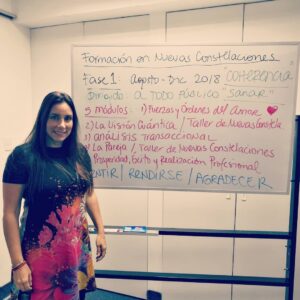 Formación en Nuevas Constelaciones
Fase 1 Agosto - Dic 2018 COHERENCIA
Dirigido a TODO PÚBLICO "SANAR"
5 módulos: 1) Fuerzas y Ordenes del Amor
2) La Visión Cuántica / Taller de Nuevas Constela
3) ANÁLISIS TRANSACCIONAL
4) La Pareja / Taller de Nuevas Constelaciones
Prosperidad, Éxito y Realización Profesional
SENTIR / RENDIRSE / AGRADECER